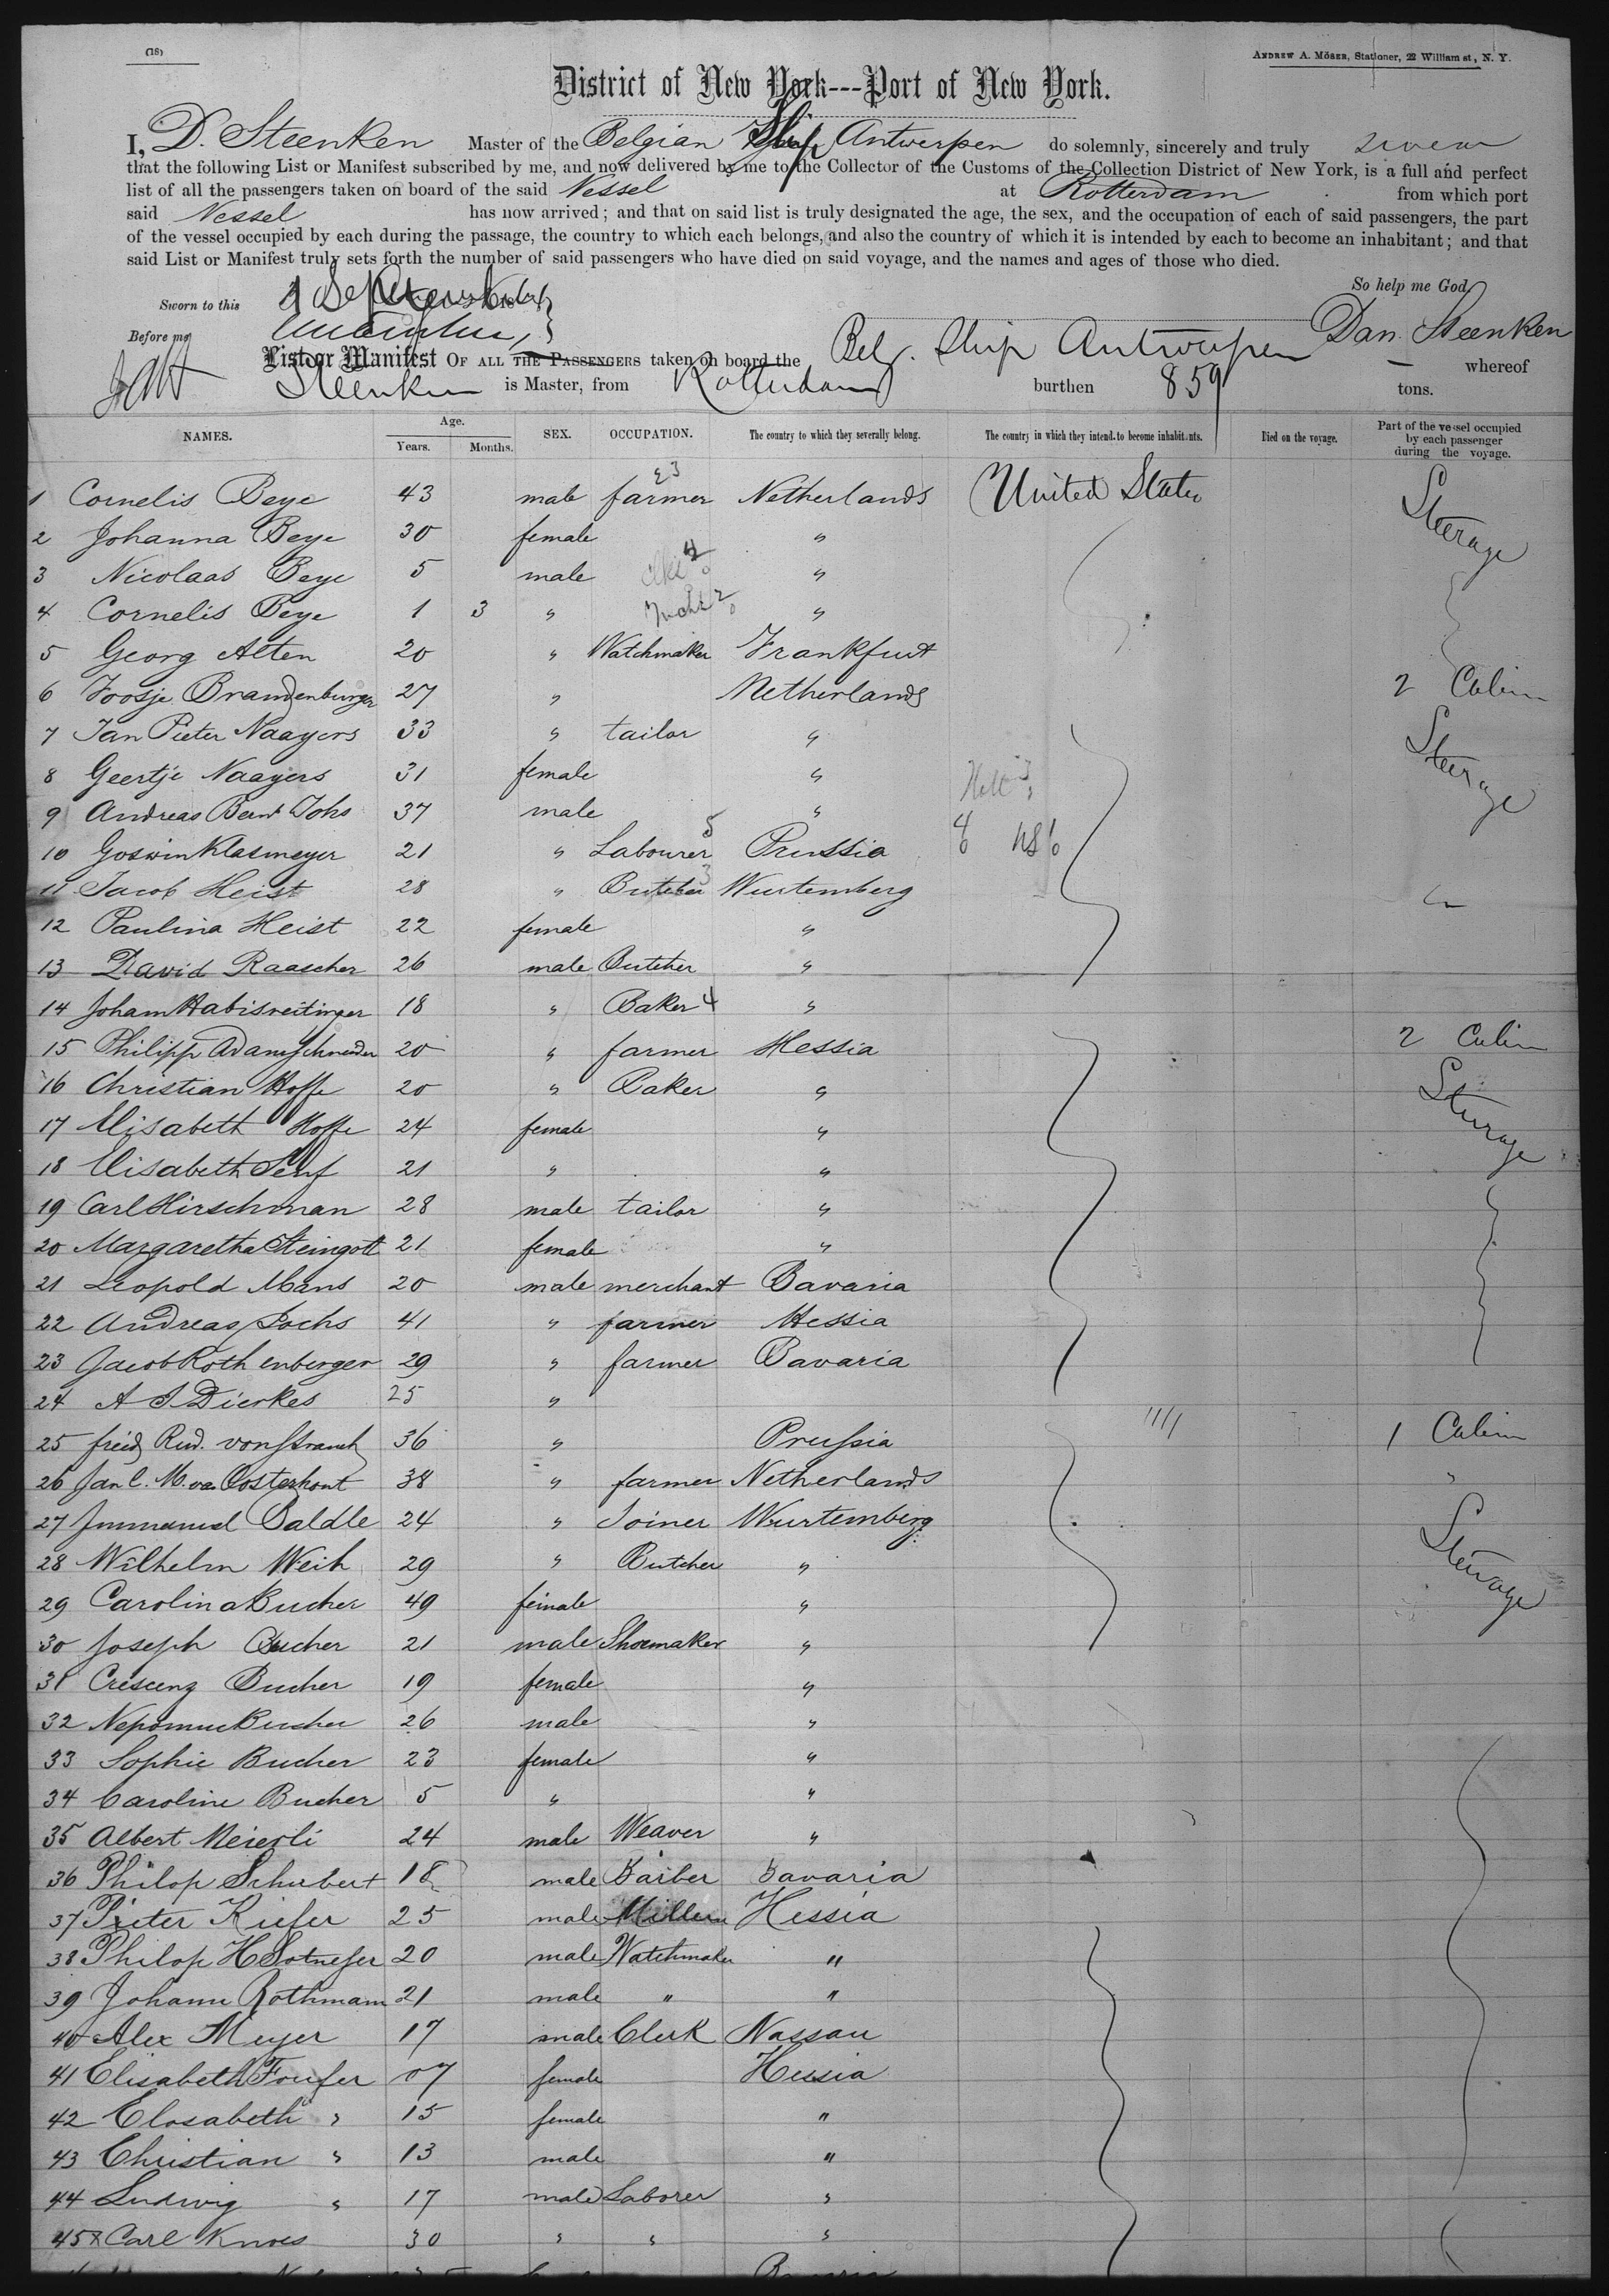 (18)
ANDREW A. MÖSER, Stationer, 22 William st, N. Y.
District of New York---Port of New York.
I, D. Steenken Master of the Belgian Ship Antwerpen do solemnly, sincerely and truly swear
that the following List or Manifest subscribed by me, and now delivered by me to the Collector of the Customs of the Collection District of New York, is a full and perfect
list of all the passengers taken on board of the said Vessel at Rotterdam from which port
said Vessel has now arrived; and that on said list is truly designated the age, the sex, and the occupation of each of said passengers, the part
of the vessel occupied by each during the passage, the country to which each belongs, and also the country of which it is intended by each to become an inhabitant; and that
said List or Manifest truly sets forth the number of said passengers who have died on said voyage, and the names and ages of those who died.
So help me God
Sworn to this
Before me
Dan. Steenken
List or Manifest OF ALL THE PASSENGERS taken on board the Belg. Ship Antwerpen whereof
Steenken is Master, from Rotterdam burthen 859 tons.
NAMES. Age. Years. Months. SEX. OCCUPATION. The country to which they severally belong. The country in which they intend to become inhabitants. Died on the voyage. Part of the vessel occupied by each passenger during the voyage.
1 Cornelis Beye 43 male farmer Netherlands United States Steerage
2 Johanna Beye 30 female "
3 Nicolaas Beye 5 male "
4 Cornelis Beye 1 3 " "
5 Georg Alten 20 " Watchmaker Frankfurt
6 Joosje Brandenburger 27 " Netherlands 2 Cabin
7 Jan Pieter Naayers 33 " tailor " Steerage
8 Geertje Naayers 31 female "
9 Andreas Bernt Johs 37 male "
10 Goswin Klasmeyer 21 " Labourer Prussia
11 Jacob Heist 28 " Butcher Wurtemberg
12 Paulina Heist 22 female "
13 David Raascher 26 male Butcher "
14 Joham Habisreitinger 18 " Baker "
15 Philipp Adam Schneider 20 " farmer Hessia 2 Cabin
16 Christian Hoffe 20 " Baker " Steerage
17 Elisabeth Hoffe 24 female "
18 Elisabeth Senf 21 " "
19 Carl Hirschman 28 male tailor "
20 Margaretha Steingott 21 female "
21 Leopold Mans 20 male merchant Bavaria
22 Andreas Jochs 41 " farmer Hessia
23 Jacob Rothenberger 29 " farmer Bavaria
24 A J Dierkes 25 "
25 Freid Rud. von 36 " Prussia 1 Cabin
26 Jan C. M. van Oosterhout 38 " farmer Netherlands "
27 Immanuel Saldle 24 " Joiner Wurtemberg Steerage
28 Wilhelm Weih 29 " Butcher "
29 Carolina Bucher 49 female "
30 Joseph Bucher 21 male Shoemaker "
31 Crescenz Bucher 19 female "
32 Nepomuc Bucher 26 male "
33 Sophie Bucher 23 female "
34 Caroline Bucher 5 " "
35 Albert Meierli 24 male Weaver "
36 Philop Schubert 18 male Barber Bavaria
37 Pieter Kiefer 25 male Hessia
38 Philop H 20 male Watchmaker "
39 Johann Rothmann 21 male " "
40 Alex Meyer 17 male Clerk Nassau
41 Elisabeth female Hessia
42 Elosabeth " 15 female "
43 Christian " 13 male "
44 Ludwig " 17 male Laborer "
45 x Carl Knoes 30 " " "